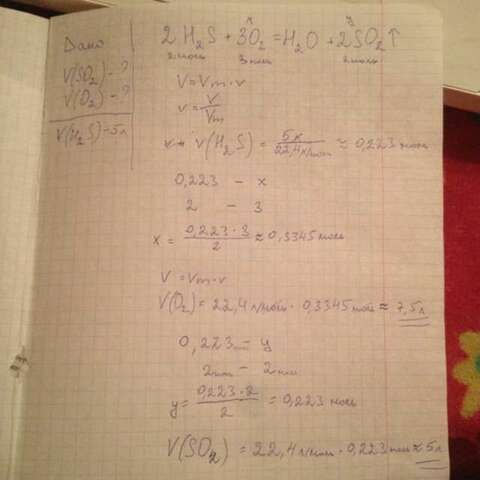 Дано
V(SO₂) - ?
V(O₂) - ?
V(H₂S) - 5л
x y
2H₂S + 3O₂ = H₂O + 2SO₂↑
2 моль 3 моль 2 моль
V = Vm · ν
ν = V/Vm
ν(H₂S) = 5л / 22,4 л/моль ≈ 0,223 моль
0,223 – x
2 – 3
x = 0,223 · 3 / 2 ≈ 0,3345 моль
V = Vm · ν
V(O₂) = 22,4 л/моль · 0,3345 моль ≈ 7,5л
0,223 моль – y
2 моль – 2 моль
y = 0,223 · 2 / 2 = 0,223 моль
V(SO₂) = 22,4 л/моль · 0,223 моль ≈ 5л